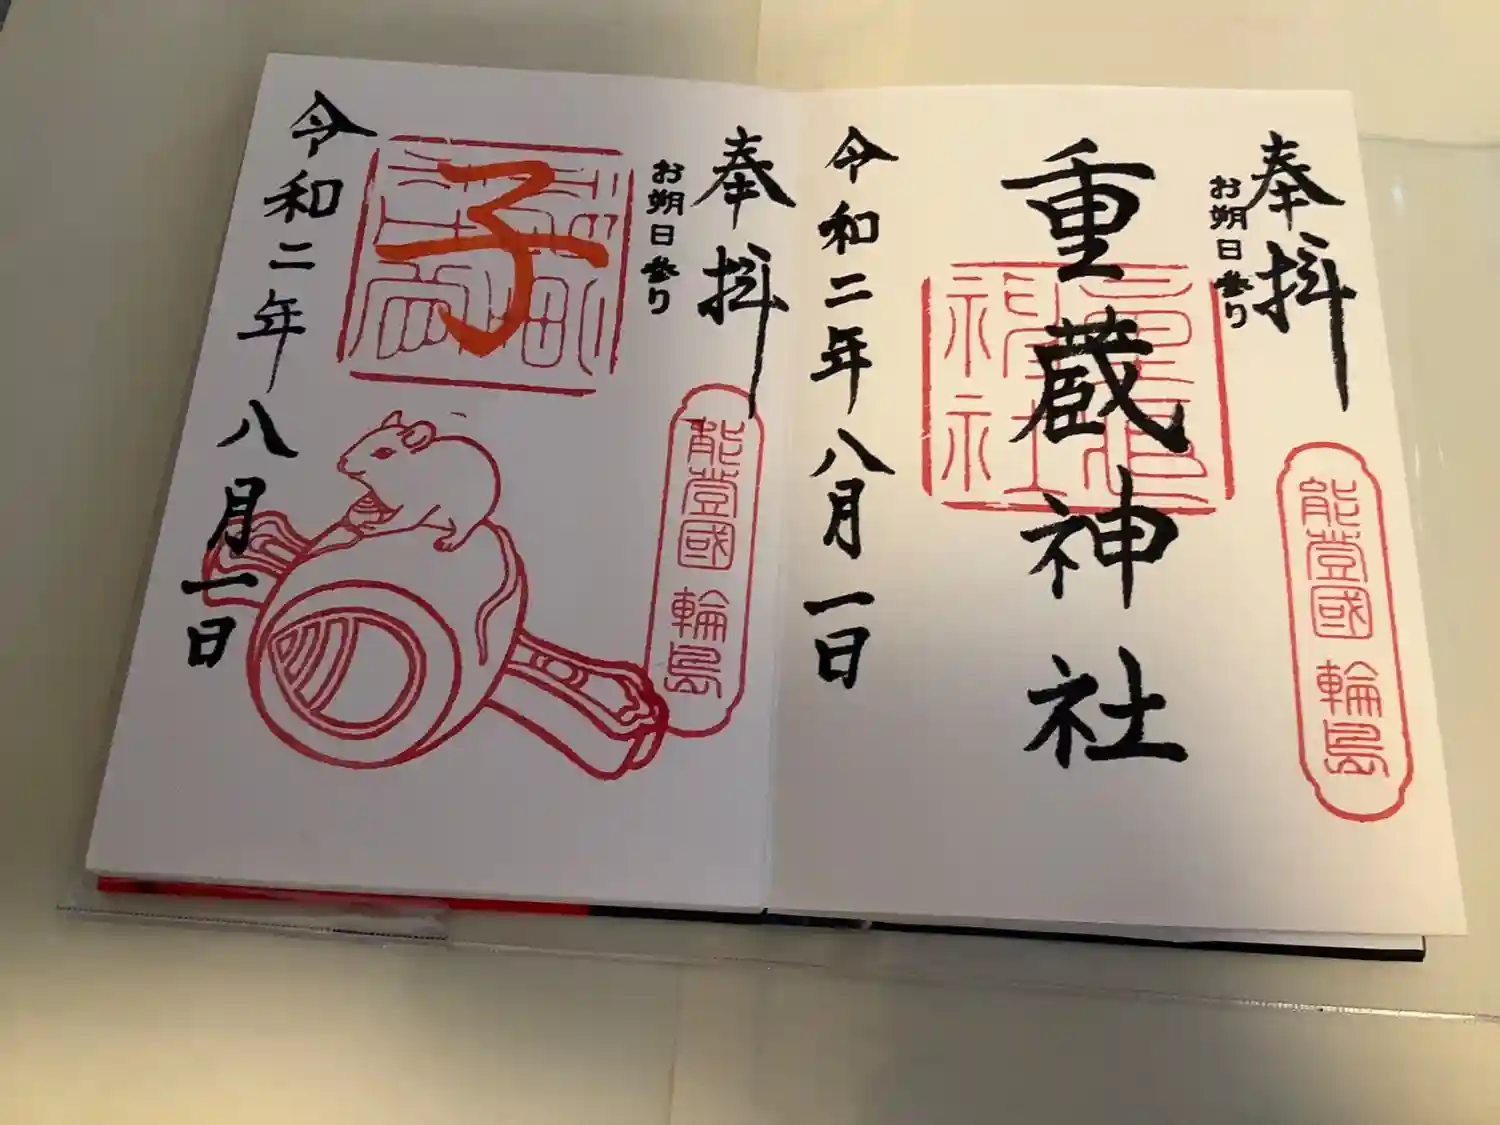 奉拝
お朔日参り
能登國 輪島
重蔵神社
令和二年八月一日
奉拝
お朔日参り
能登國 輪島
子
令和二年八月一日